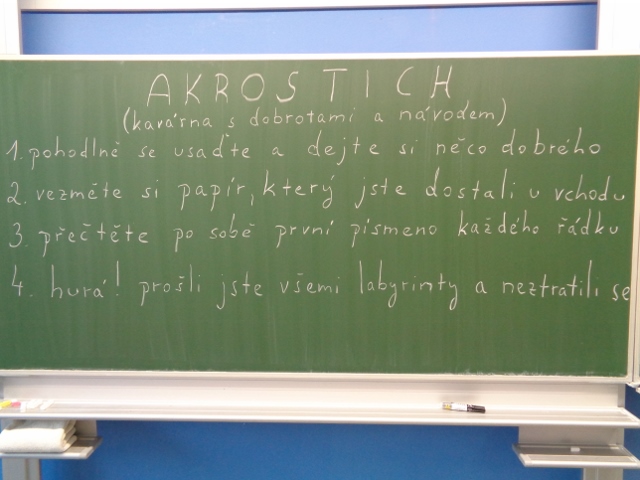 AKROSTICH
(kavárna s dobrotami a návodem)
1. pohodlně se usaďte a dejte si něco dobrého
2. vezměte si papír, který jste dostali u vchodu
3. přečtěte po sobě první písmeno každého řádku
4. hurá! prošli jste všemi labyrinty a neztratili se